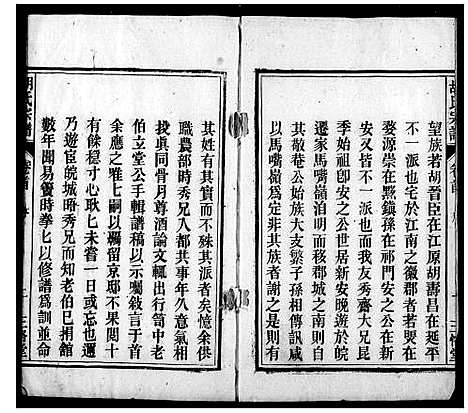 望族若胡晉臣在江原胡壽昌在延平
不一派也宅於江南之徽郡者若發在
婺源崇在黟鎮孫在祁門安之公在新
安又皆不一派也而我友秀齋大兄昆
季始祖卽安之公世居新安晚遊於皖
遷家馬嘴嶺洎明而移郡城之南則自
其敬菴公始族大支繁子孫相傳訊咸
以馬嘴嶺為定非其族者謝之是則有
其姓者而不殊其派者矣憶余供
職農部時秀兄八都共事年久意氣相
投眞同骨月尊酒論文輒出行笥中老
伯立堂公手輯譜稿以示囑敘言于首
余應之唯七嗣以羈留京邸不果閱十
有餘稔寸心耿匕未嘗一日或忘也邇
乃遊宦皖城晤秀兄而知老伯已捐舘
數年閱易簀時拳匕以修譜為訓並命
胡氏宗譜
卷首
三
胡氏宗譜
卷首
三